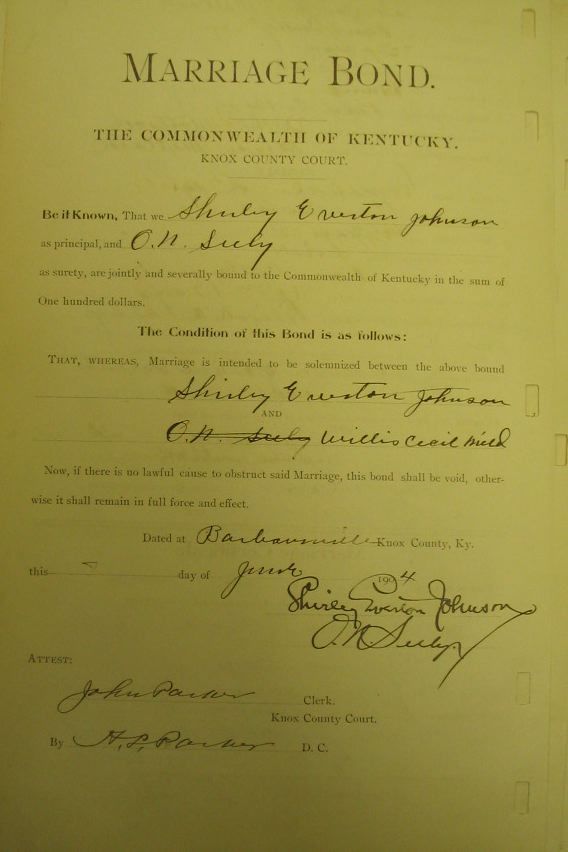 MARRIAGE BOND.
THE COMMONWEALTH OF KENTUCKY.
KNOX COUNTY COURT.
Be it Known, That we Shirley Everton Johnson
as principal, and O.N. Seely
as surety, are jointly and severally bound to the Commonwealth of Kentucky in the sum of
One hundred dollars.
The Condition of this Bond is as follows:
THAT, WHEREAS, Marriage is intended to be solemnized between the above bound
Shirley Everton Johnson
AND
O.N. Seely Willis Cecil
Now, if there is no lawful cause to obstruct said Marriage, this bond shall be void, other-
wise it shall remain in full force and effect.
Dated at Barbourville Knox County, Ky.
this day of June 1904
Shirley Everton Johnson
O.N. Seely
ATTEST:
John Parker Clerk.
Knox County Court.
By H.L. Parker D. C.